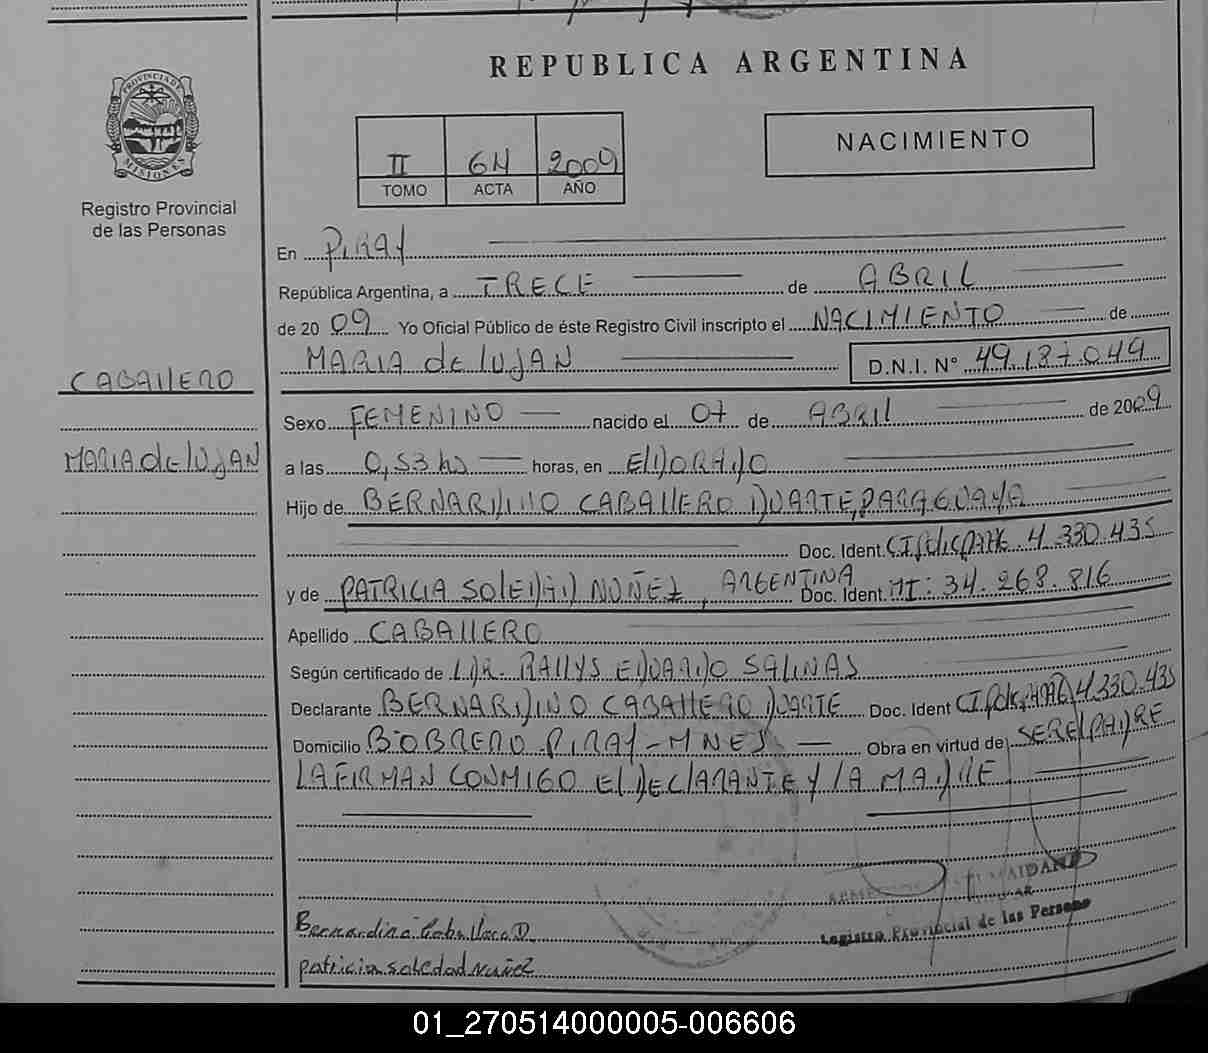 REPUBLICA ARGENTINA
PROVINCIA DE
MISIONES
Registro Provincial
de las Personas
II 64 2009
TOMO ACTA AÑO
NACIMIENTO
En PIRAY
República Argentina, a TRECE de ABRIL
de 2009 Yo Oficial Público de éste Registro Civil inscripto el NACIMIENTO de
MARIA de lUJAN D.N.I. N° 49.187.049
CABAllERO
MARIA de lUJAN
Sexo FEMENINO nacido el 07 de ABRIL de 2009
a las 0,53 hs horas, en ElDORADO
Hijo de BERNARDINO CABAllERO DUARTE, PARAGUAYA
Doc. Ident. 4.330.435
y de PATRICIA SOlEDAD NUÑEZ, ARGENTINA Doc. Ident. 34.268.816
Apellido CABAllERO
Según certificado de DR. RAllYS EDUARDO SALINAS
Declarante BERNARDINO CABAllERO DUARTE Doc. Ident 4.330.435
Domicilio Bº OBRERO-PIRAY-MNES Obra en virtud de SER El PADRE
LA FIRMAN CONMIGO El DEClARANTE Y lA MADRE
Bernardino Caballero D.
patricia soledad Nuñez
Registro Provincial de las Persona
01_270514000005-006606